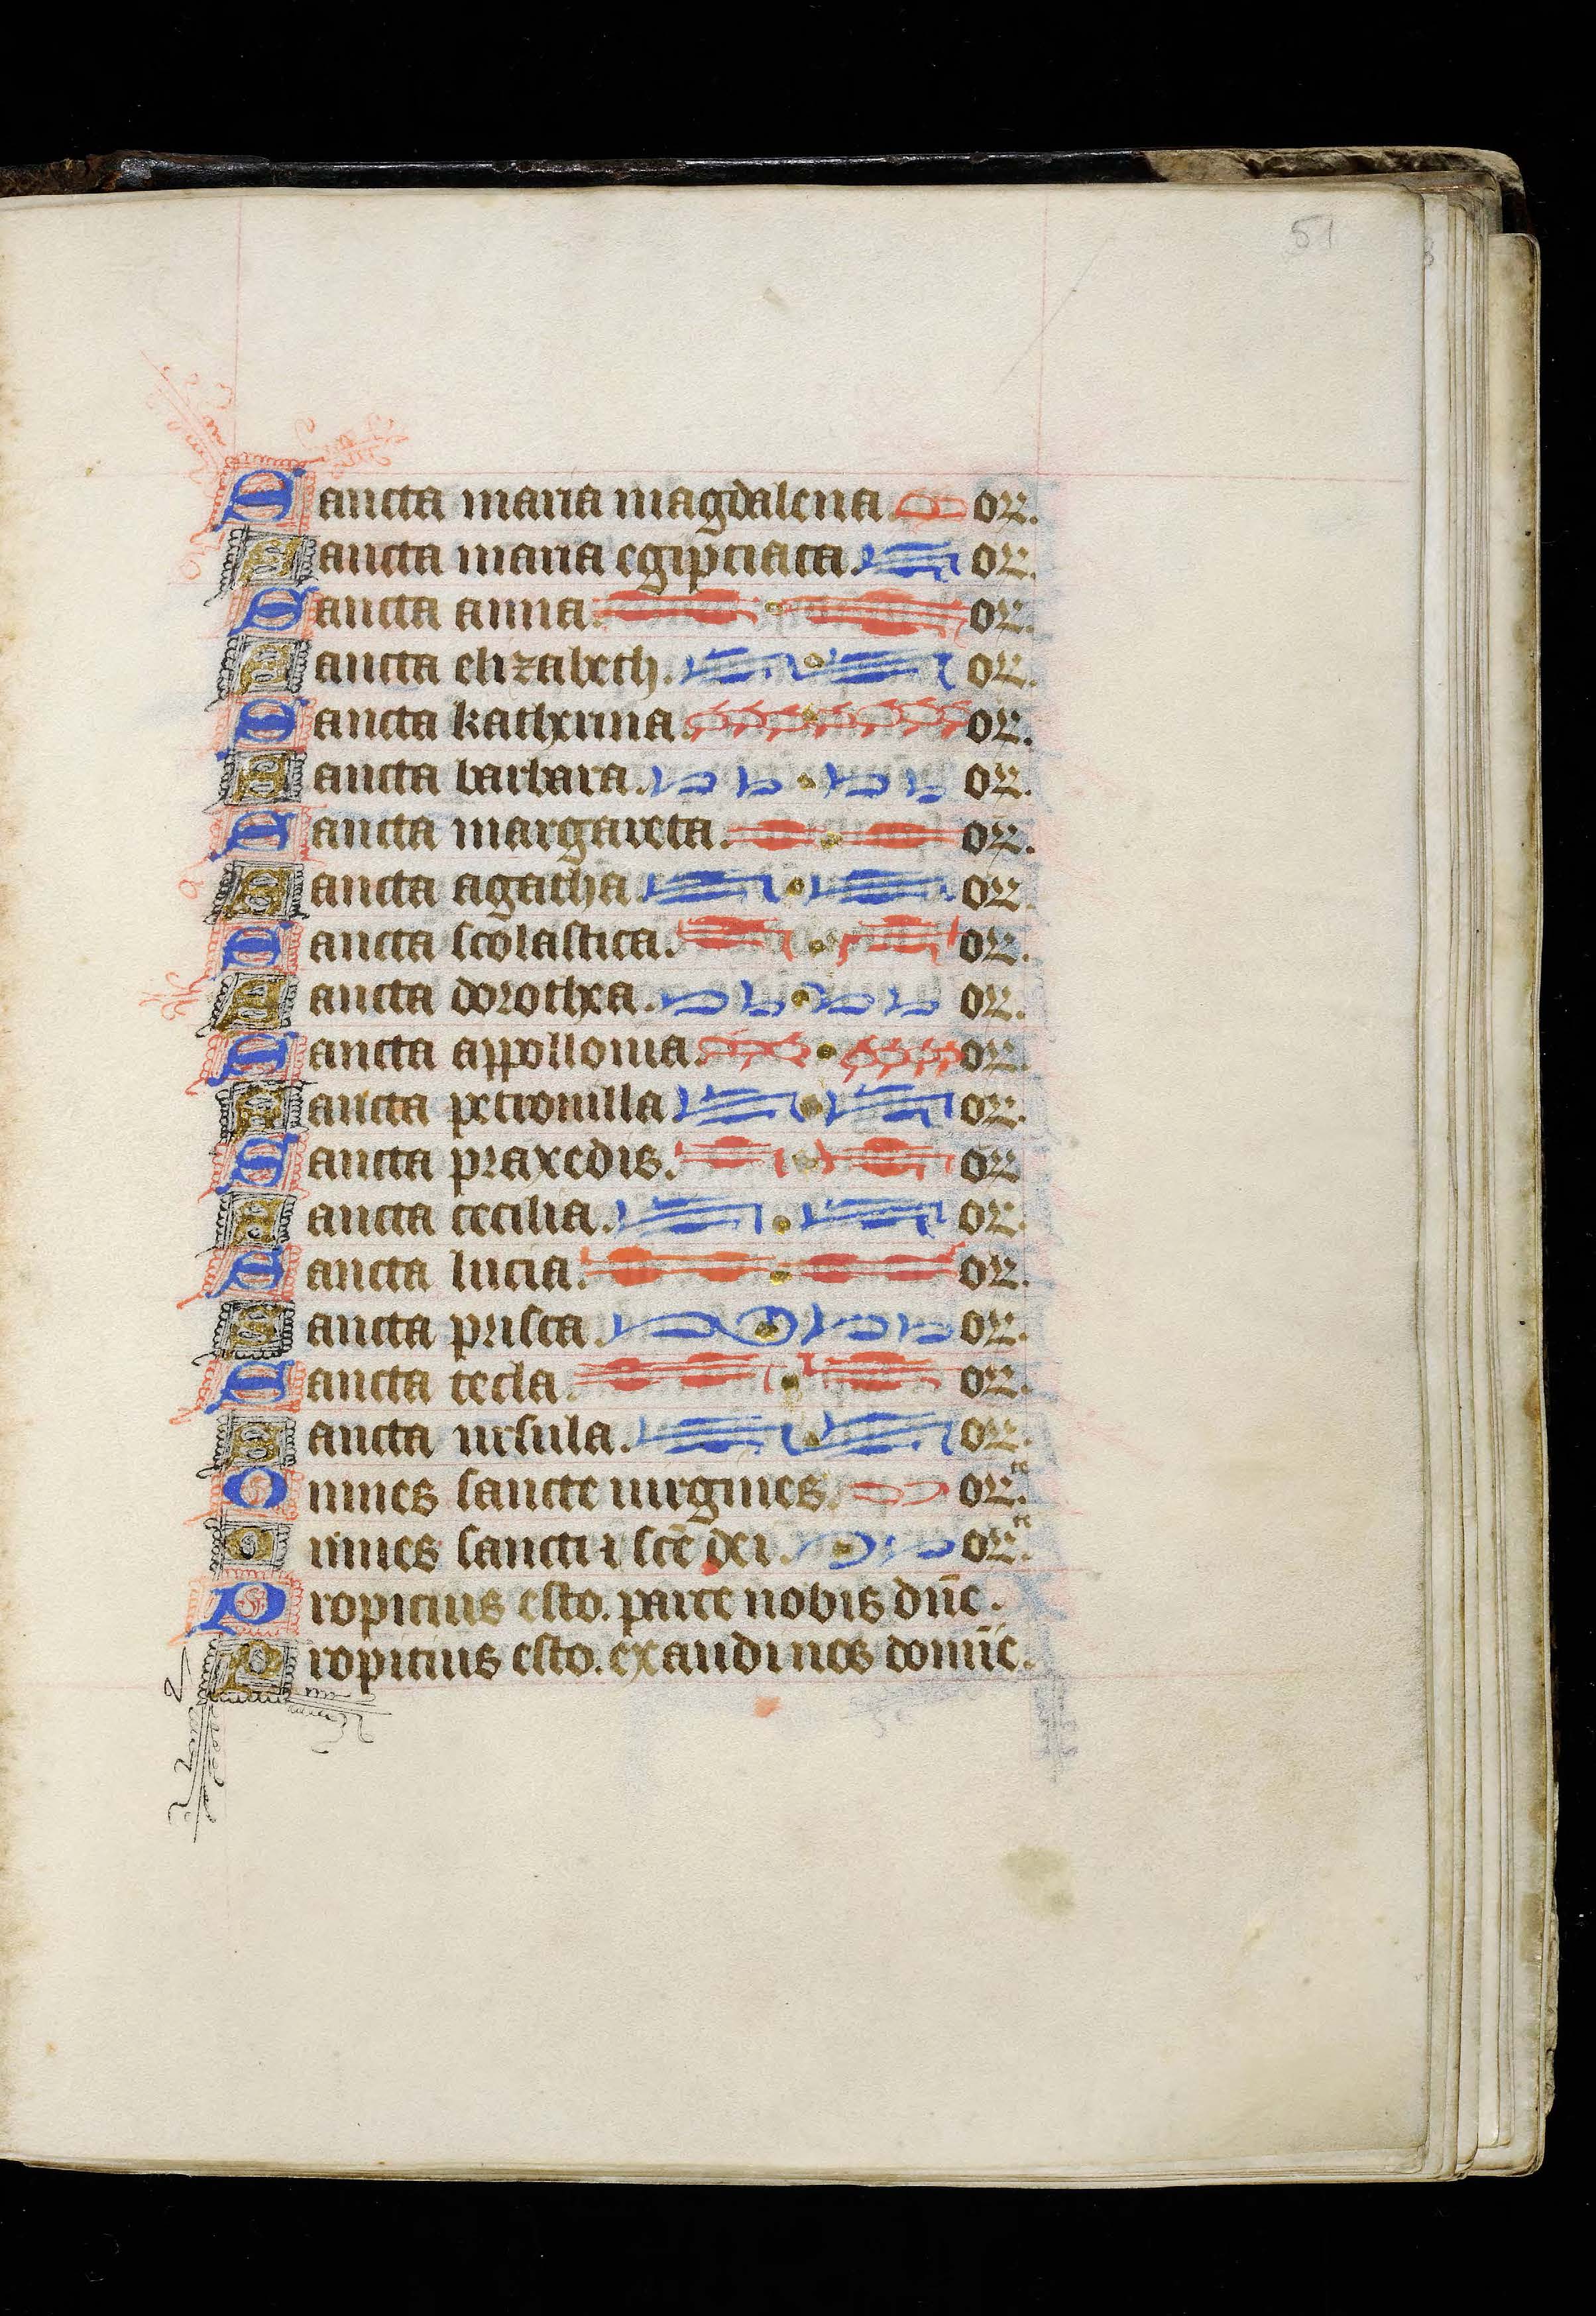 51
Sancta maria magdalena. or.
Sancta maria egipciaca. or.
Sancta anna. or.
Sancta elizabeth. or.
Sancta katherina. or.
Sancta barbara. or.
Sancta margareta. or.
Sancta agatha. or.
Sancta scolastica. or.
Sancta dorothea. or.
Sancta appollonia. or.
Sancta petronilla or.
Sancta praxedis. or
Sancta cecilia. or.
Sancta lucia. or.
Sancta prisca. or.
Sancta tecla. or.
Sancta ursula. or.
Omnes sancte uirgines. or.te
Om̄nes sancti ⁊ sc̄e dei. or.te
Propicius esto. parce nobis dn̄e.
Propicius esto. exaudi nos domīe.